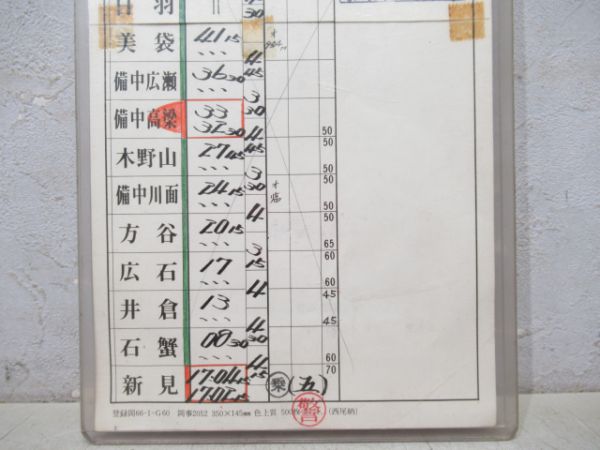 日羽
30
美袋 41 15
4
備中広瀬 36 30 45
3
備中高梁 33 30
32 30 4 50
木野山 27 45 45 50
3 50
備中川面 24 15 30 50
4 50
方谷 20 15 65
3 60
広石 17 15
4 60
井倉 13 45
4 45
石蟹 08 30 30
4 60
新見 17.04 15 15 70
17.02 15 乗 (五)
登録岡66-1-G60 岡事2052 350×145mm 色上質 500枚 (西尾納)